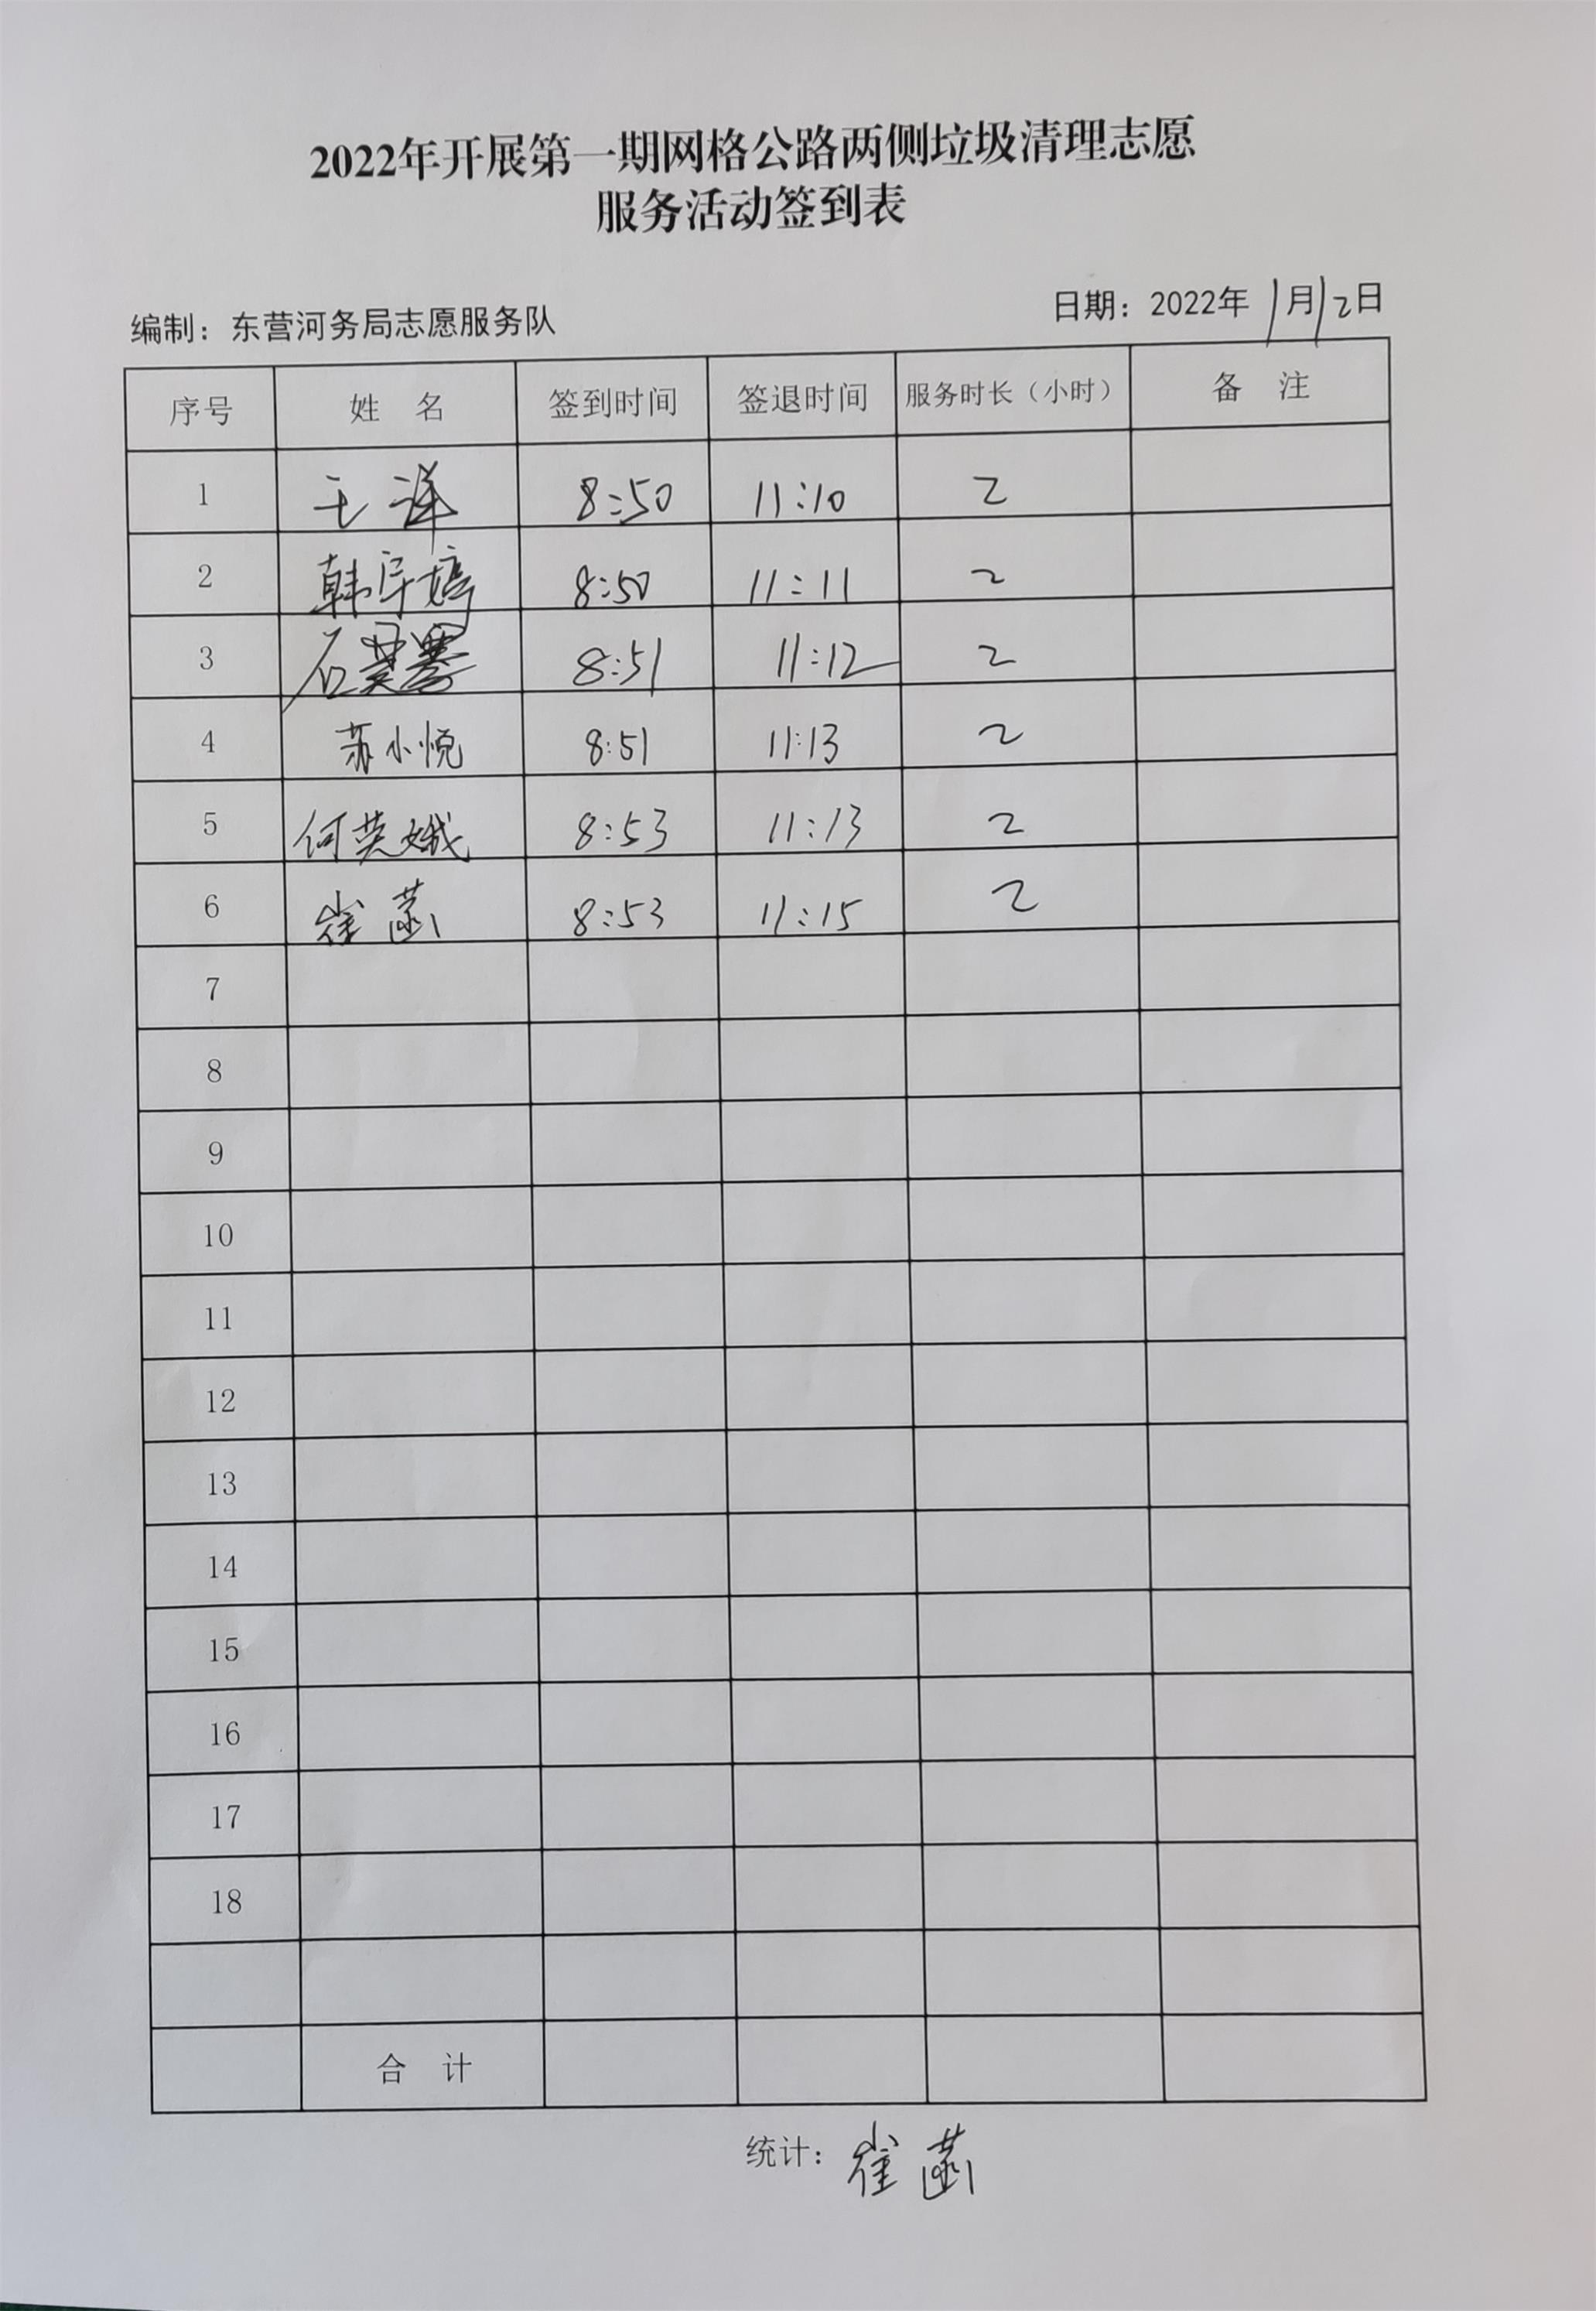 2022年开展第一期网格公路两侧垃圾清理志愿
服务活动签到表
编制：东营河务局志愿服务队 日期：2022年1月12日
序号 姓 名 签到时间 签退时间 服务时长（小时） 备 注
1 王洋 8:50 11:10 2
2 韩 8:50 11:11 2
3 石 8:51 11:12 2
4 苏小悦 8:51 11:13 2
5 何英娥 8:53 11:13 2
6 崔菡 8:53 11:15 2
7
8
9
10
11
12
13
14
15
16
17
18
合 计
统计：崔菡